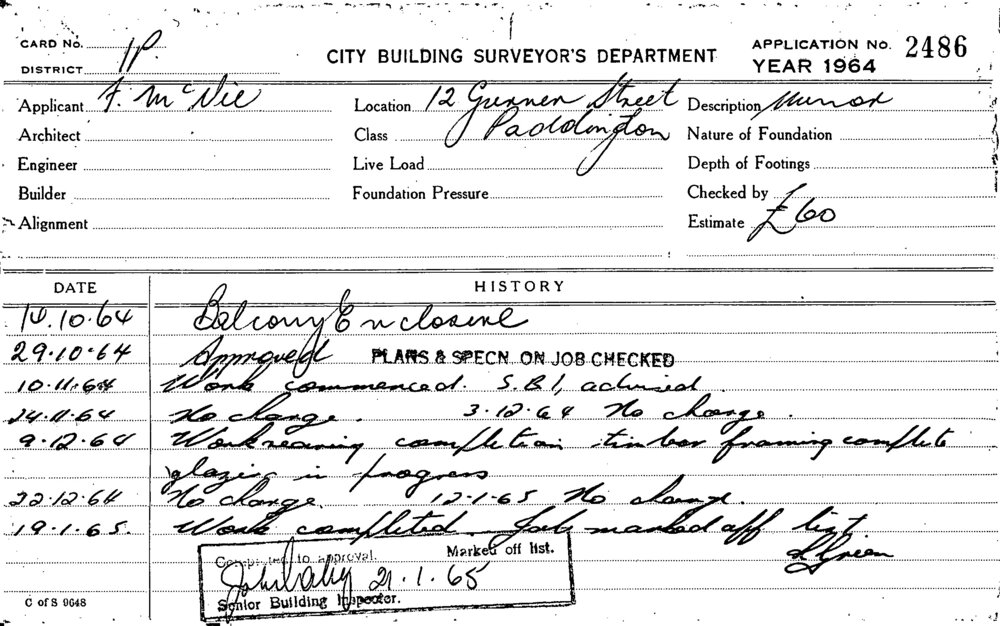 CARD No. 1P
DISTRICT
CITY BUILDING SURVEYOR'S DEPARTMENT
APPLICATION No. 2486
YEAR 1964
Applicant F. McVie
Location 12 Gurner Street
Paddington
Description Minor
Architect
Class
Nature of Foundation
Engineer
Live Load
Depth of Footings
Builder
Foundation Pressure
Checked by
Alignment
Estimate £60
DATE HISTORY
14.10.64 Balcony Enclosure
29.10.64 Approved PLANS & SPECN. ON JOB CHECKED
10.11.64 Work commenced. S.B.I. advised.
24.11.64 No change. 3.12.64 No change.
9.12.64 Work nearing completion timber framing complete
glazing in progress
22.12.64 No change. 12.1.65 No change.
19.1.65. Work completed. Job marked off list
Green
Completed to approval. Marked off list.
21.1.65
Senior Building Inspector.
C of S 9648